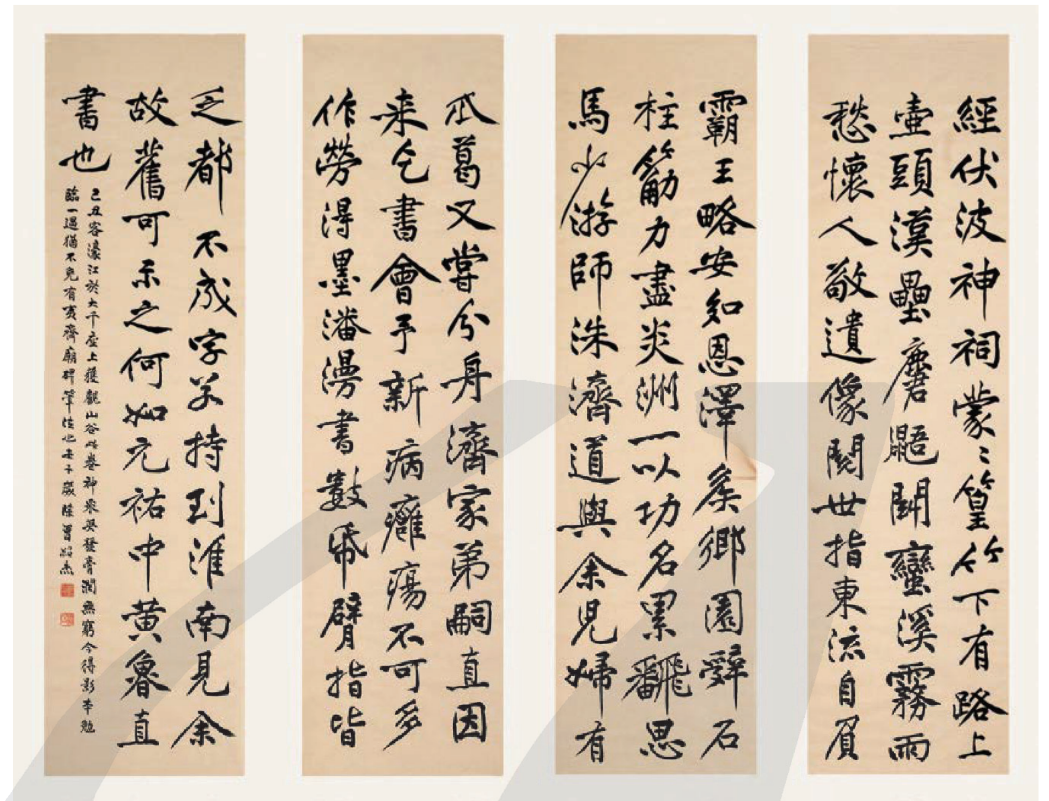 經伏波神祠蒙〻篁竹下有路上
壺頭漢壘麏鼯鬪蠻溪霧雨
愁懷人敬遺像閱世指東流自負
霸王略安知恩澤矦鄉園辭石
柱筋力盡炎洲一以功名累翻思
馬少游師洙濟道與余兒婦有
瓜葛又嘗分舟濟家弟嗣直因
来乞書會予新病癰瘍不可多
作勞得墨瀋漫書數帋臂指皆
乏都不成字若持到淮南見余
故舊可示之何如元祐中黃魯直
書也
己丑客濠江於大千座上獲觀山谷此卷神采英發膏潤無窮今得影本勉
臨一過猶不免有夷齊廟碑筆法也壬子歲除曾紹杰